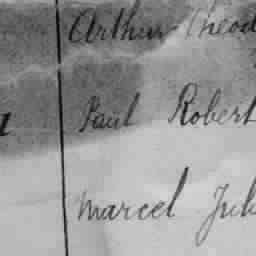 Arthur Théod
Paul Robert
Marcel Jul